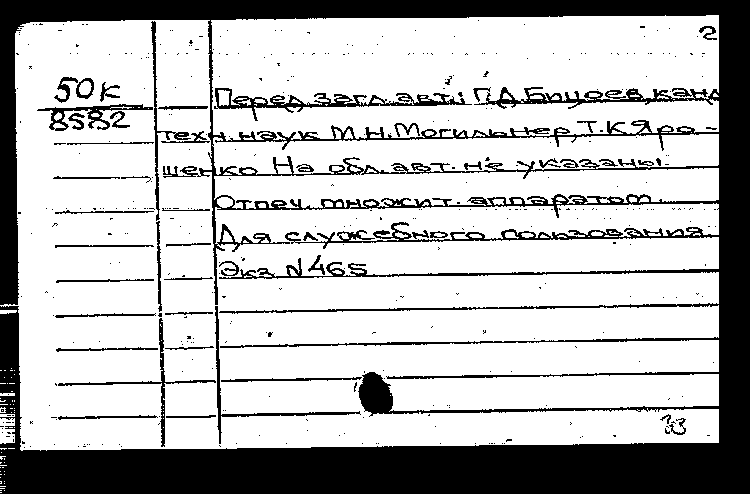 2
50к
8582
Перед загл. авт.: Г.Д. Бицоев, канд.
техн. наук М.Н. Могильнер, Т.К. Яро-
шенко На обл. авт. не указаны.
Отпеч. множит. аппаратом.
Для служебного пользования.
Экз N465
33